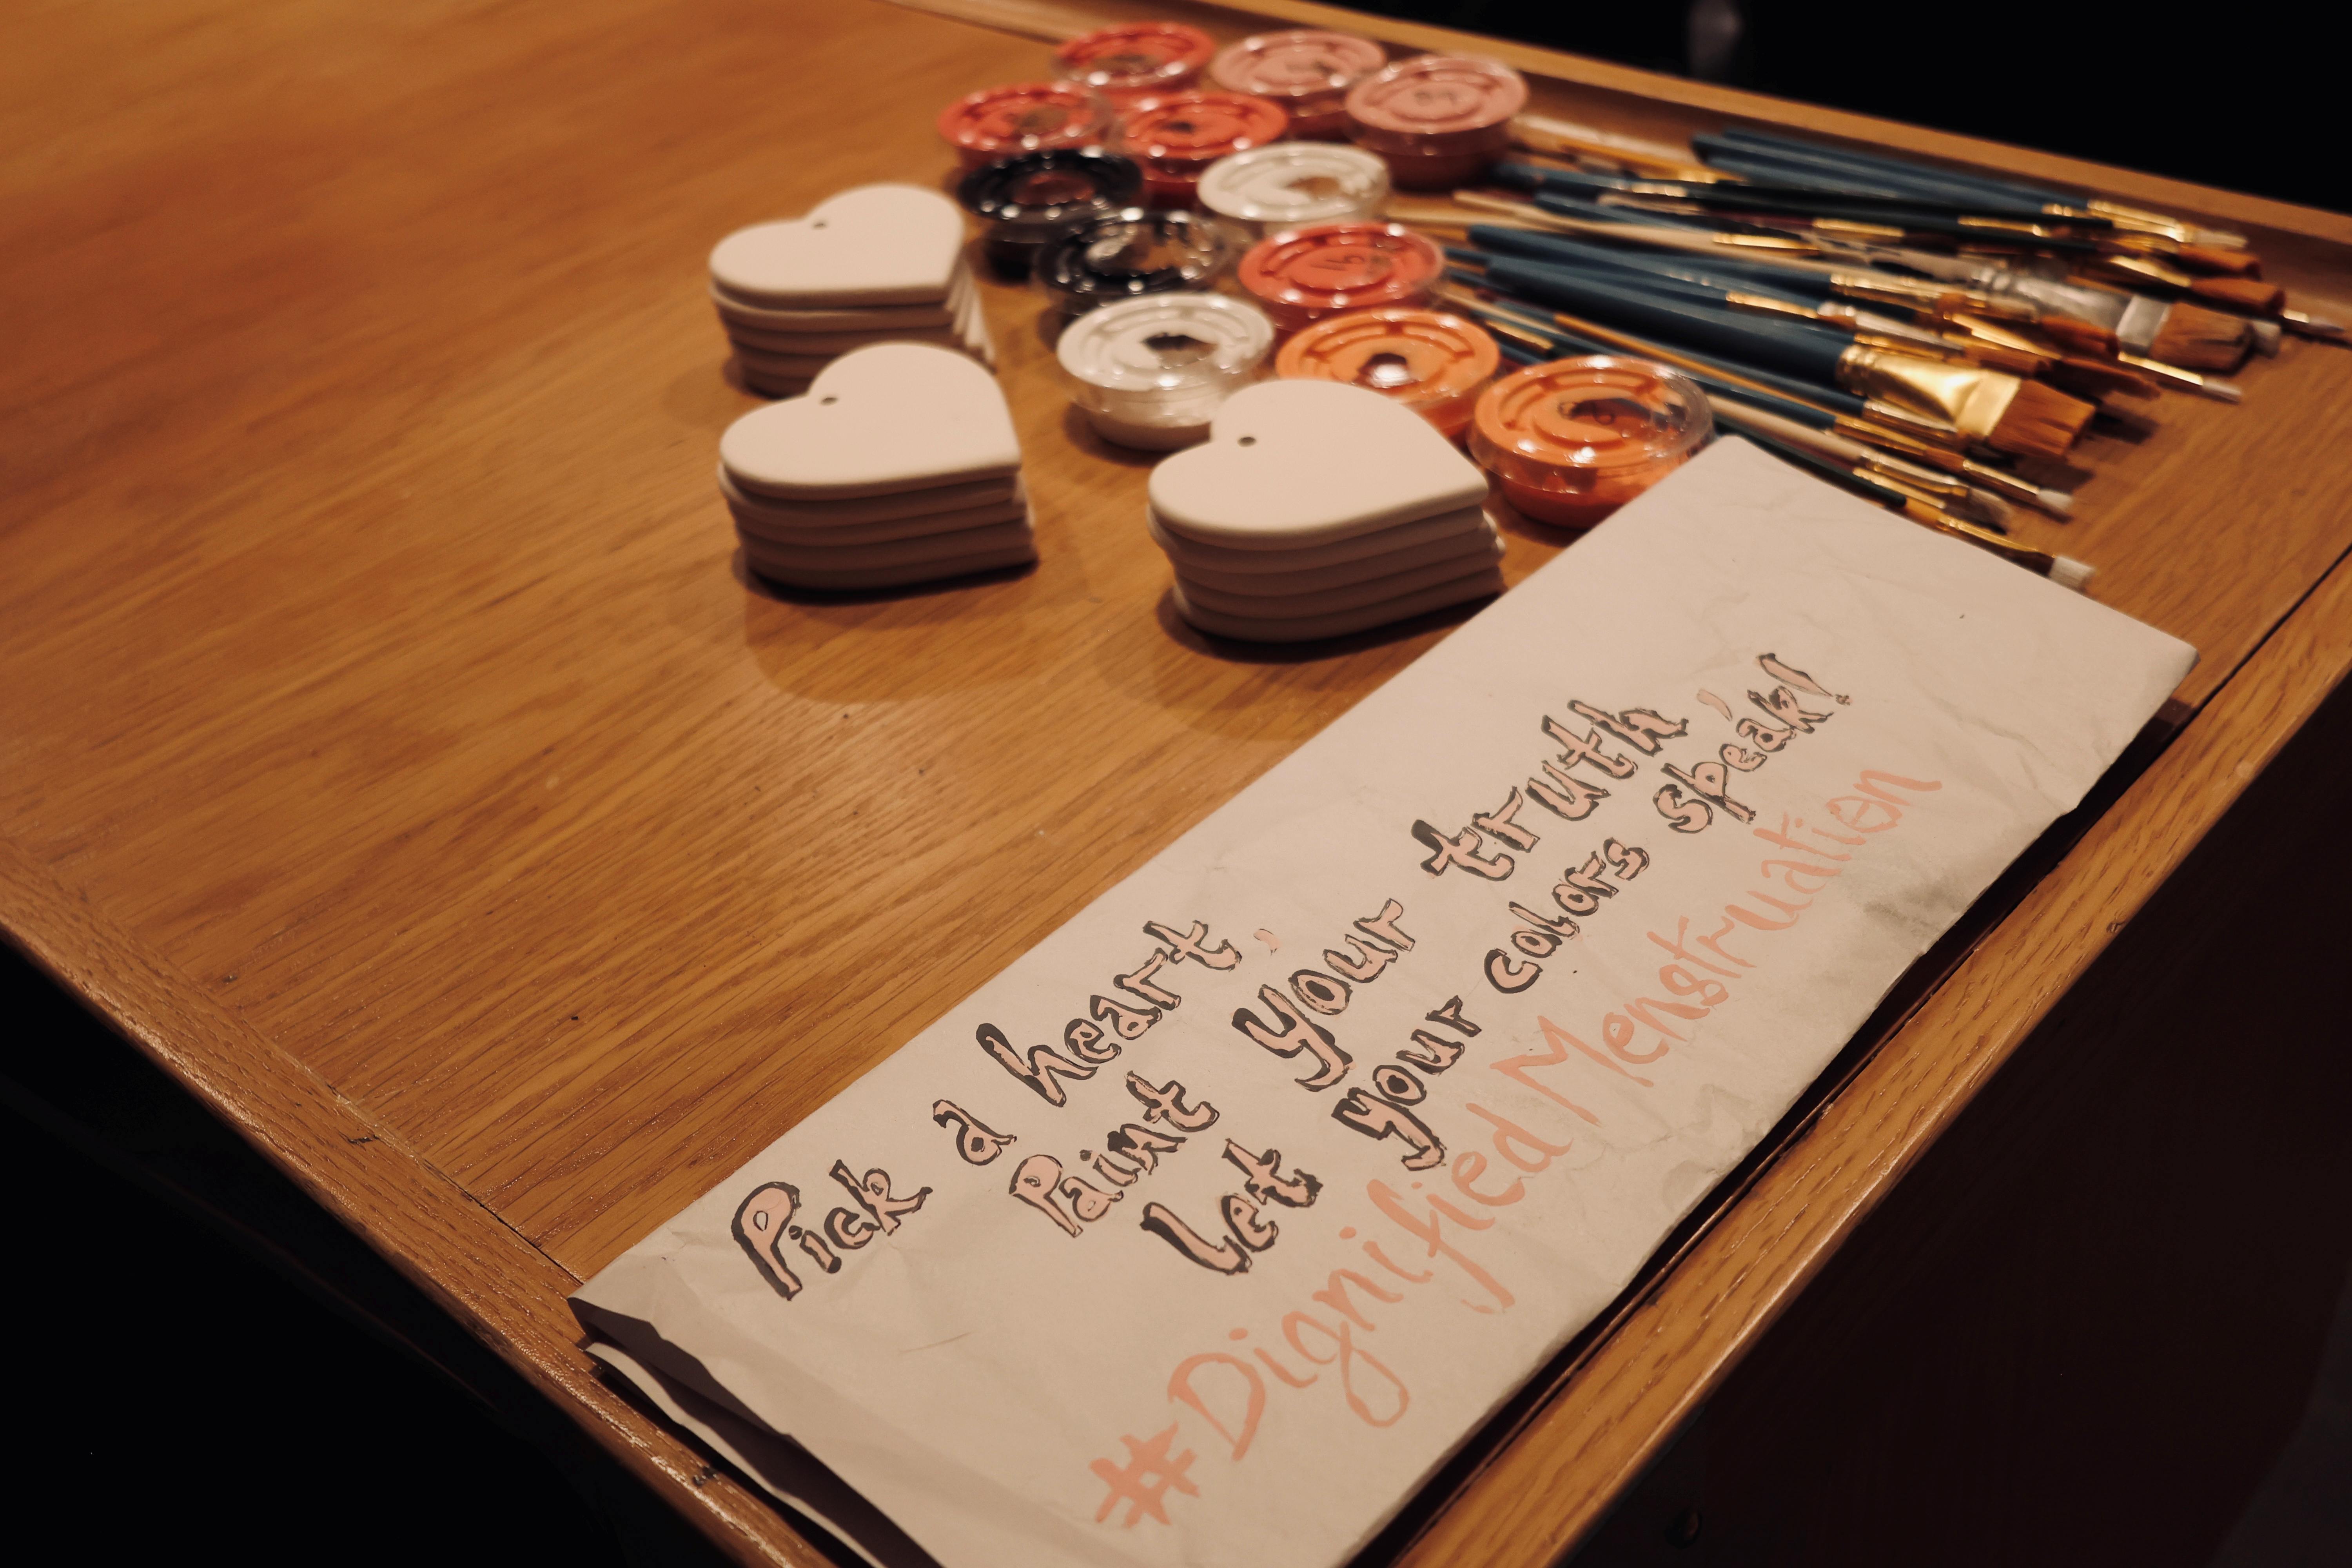 Pick a heart,
Paint your truth,
Let your colors speak!
#Dignified Menstruation